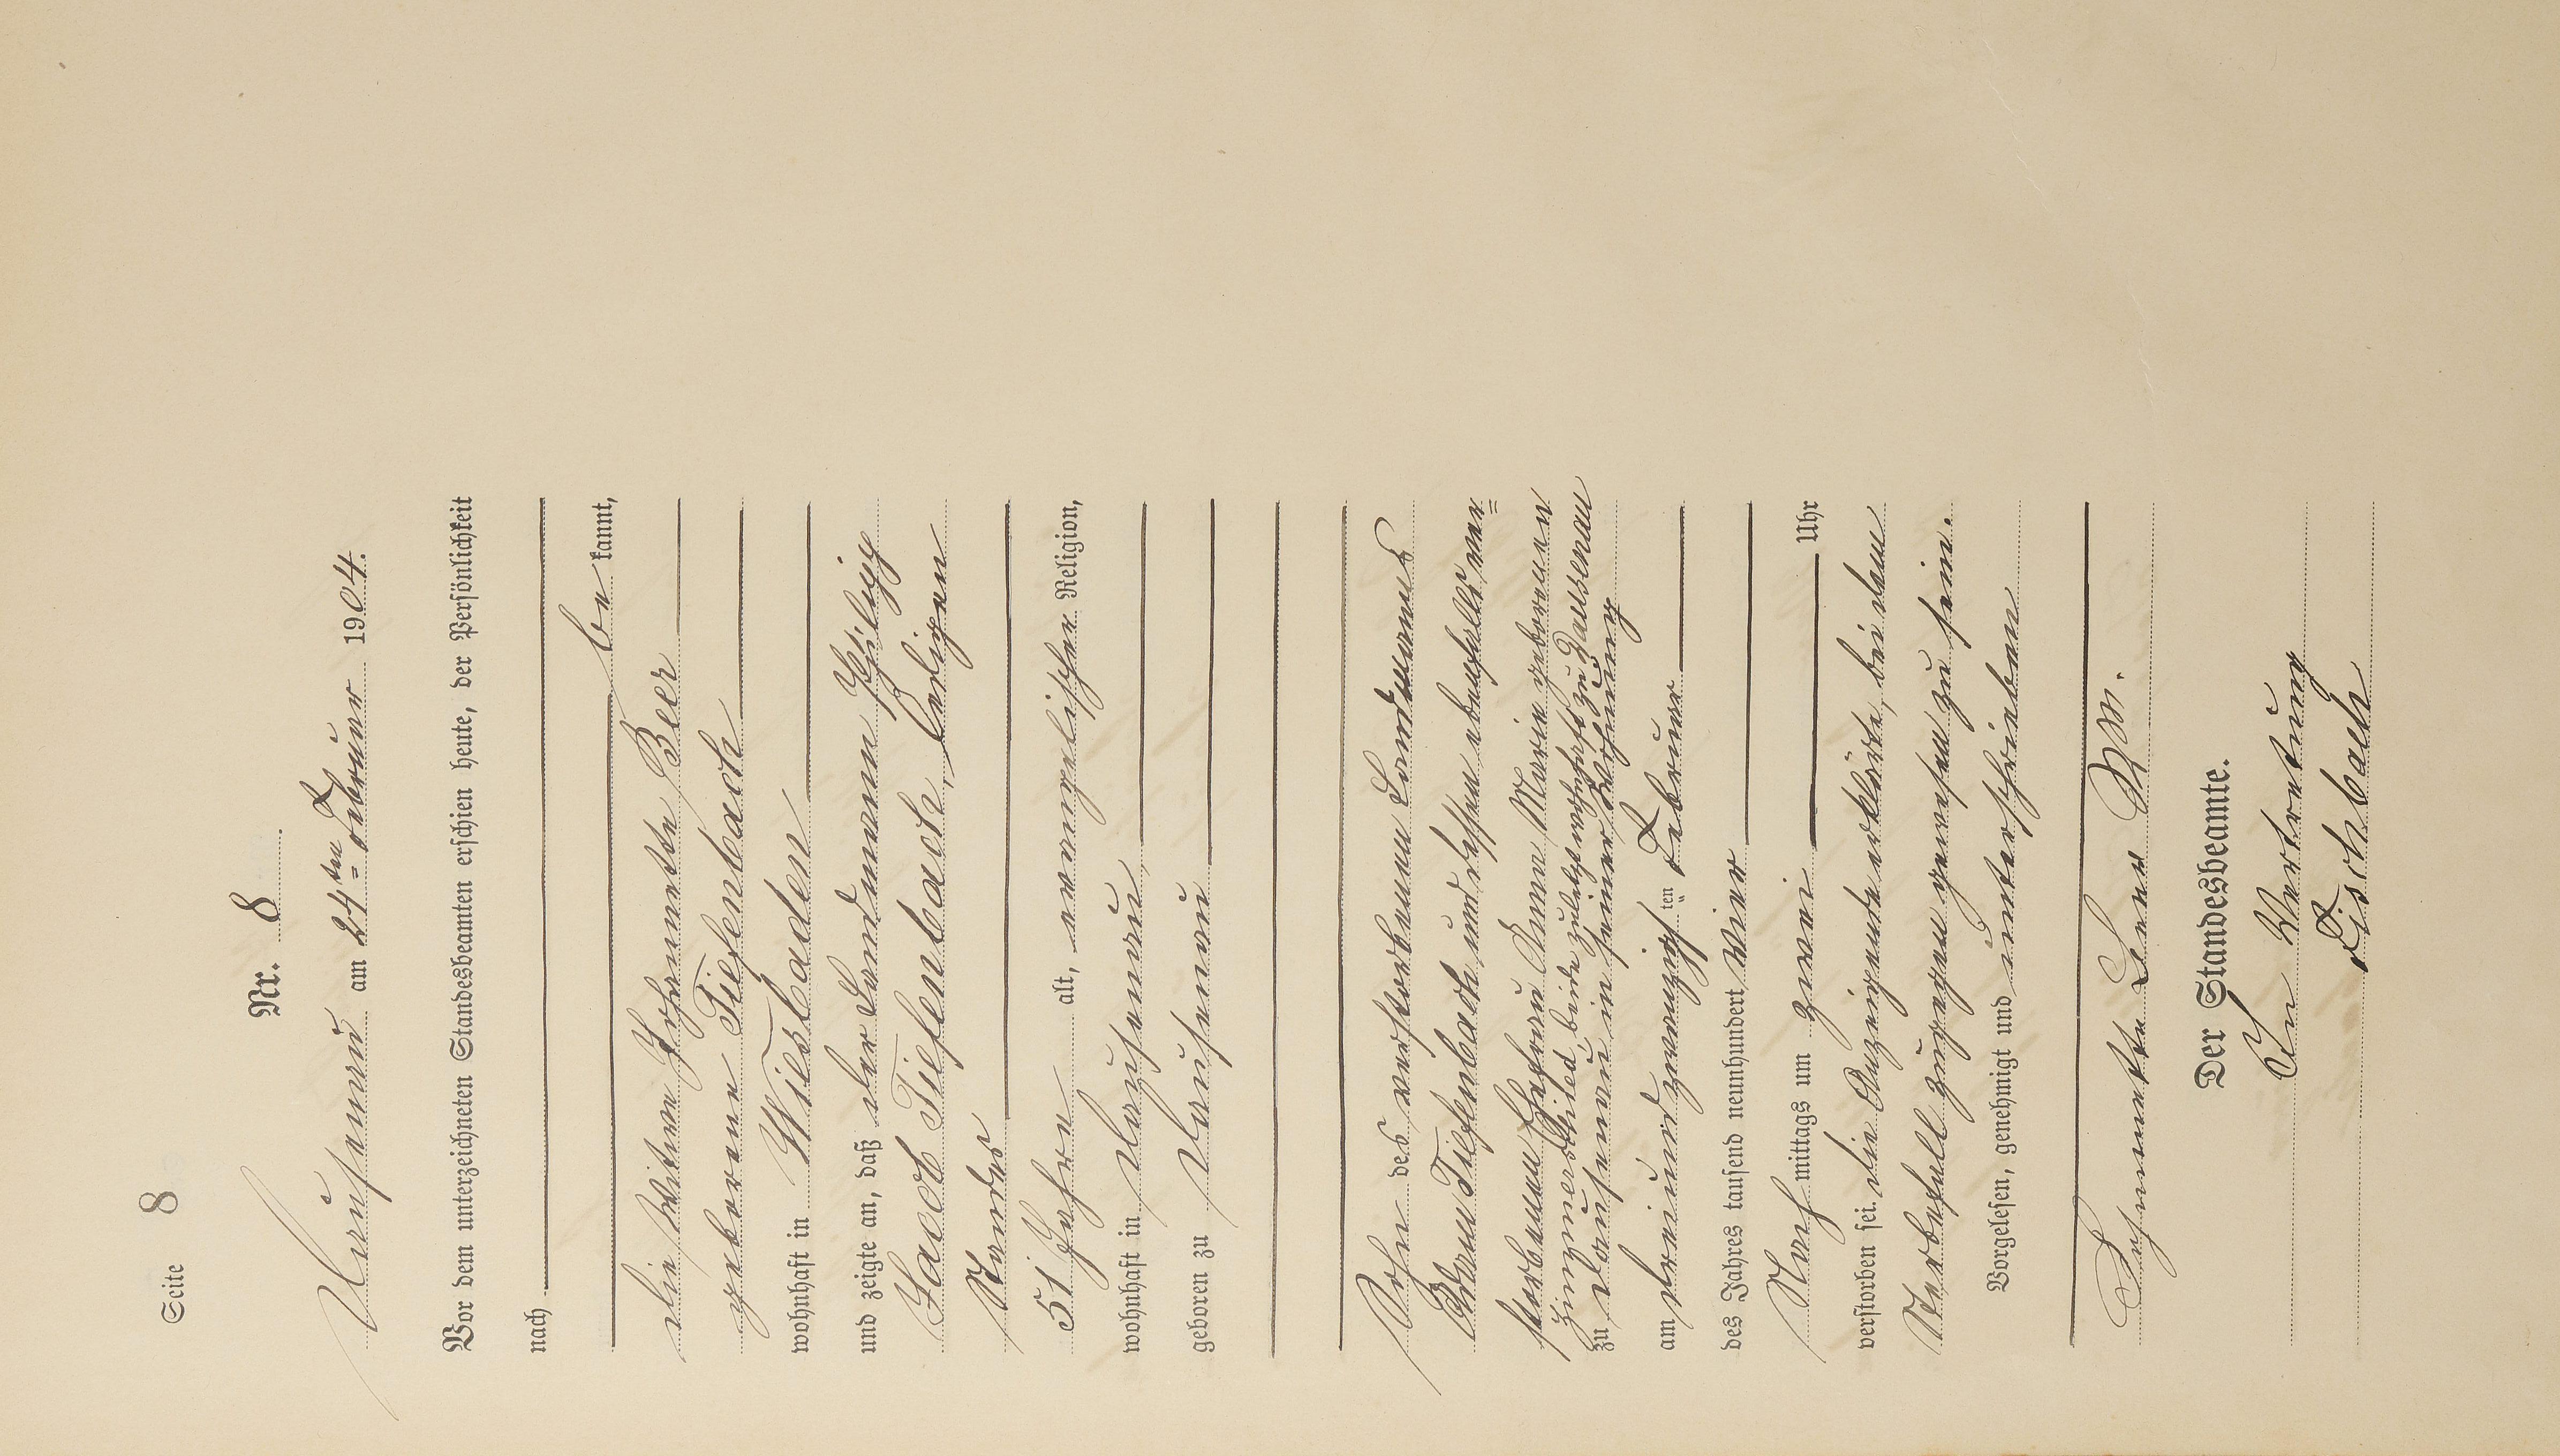 Seite 8
Nr. 8
Dausenau am 24ten Februar 1904.
Vor dem unterzeichneten Standesbeamten erschien heute, der Persönlichkeit
nach
be kannt,
die Witwe Johannette Beer
geborene Tiefenbach
wohnhaft in Wiesbaden
und zeigte an, daß der Landmann Philipp
Jacob Tiefenbach, ledigen
Standes
51 Jahre alt, evangelischer Religion,
wohnhaft in Dausenau
geboren zu Dausenau
Sohn des verstorbenen Landmanns
Adam Tiefenbach und dessen ebenfalls ver=
storbenen Ehefrau Anna Maria geborenen
Zimmerschied, beide zuletzt wohnhaft zu Dausenau
zu Dausenau in seiner Wohnung
am dreiundzwanzigsten Februar
des Jahres tausend neunhundert vier
Nach mittags um zwei Uhr
verstorben sei. Die Anzeigende erklärte, bei dem
Sterbefall zugegen gewesen zu sein.
Vorgelesen, genehmigt und unterschrieben
Johannette Beer Ww.
Der Standesbeamte.
In Vertretung
Fischbach